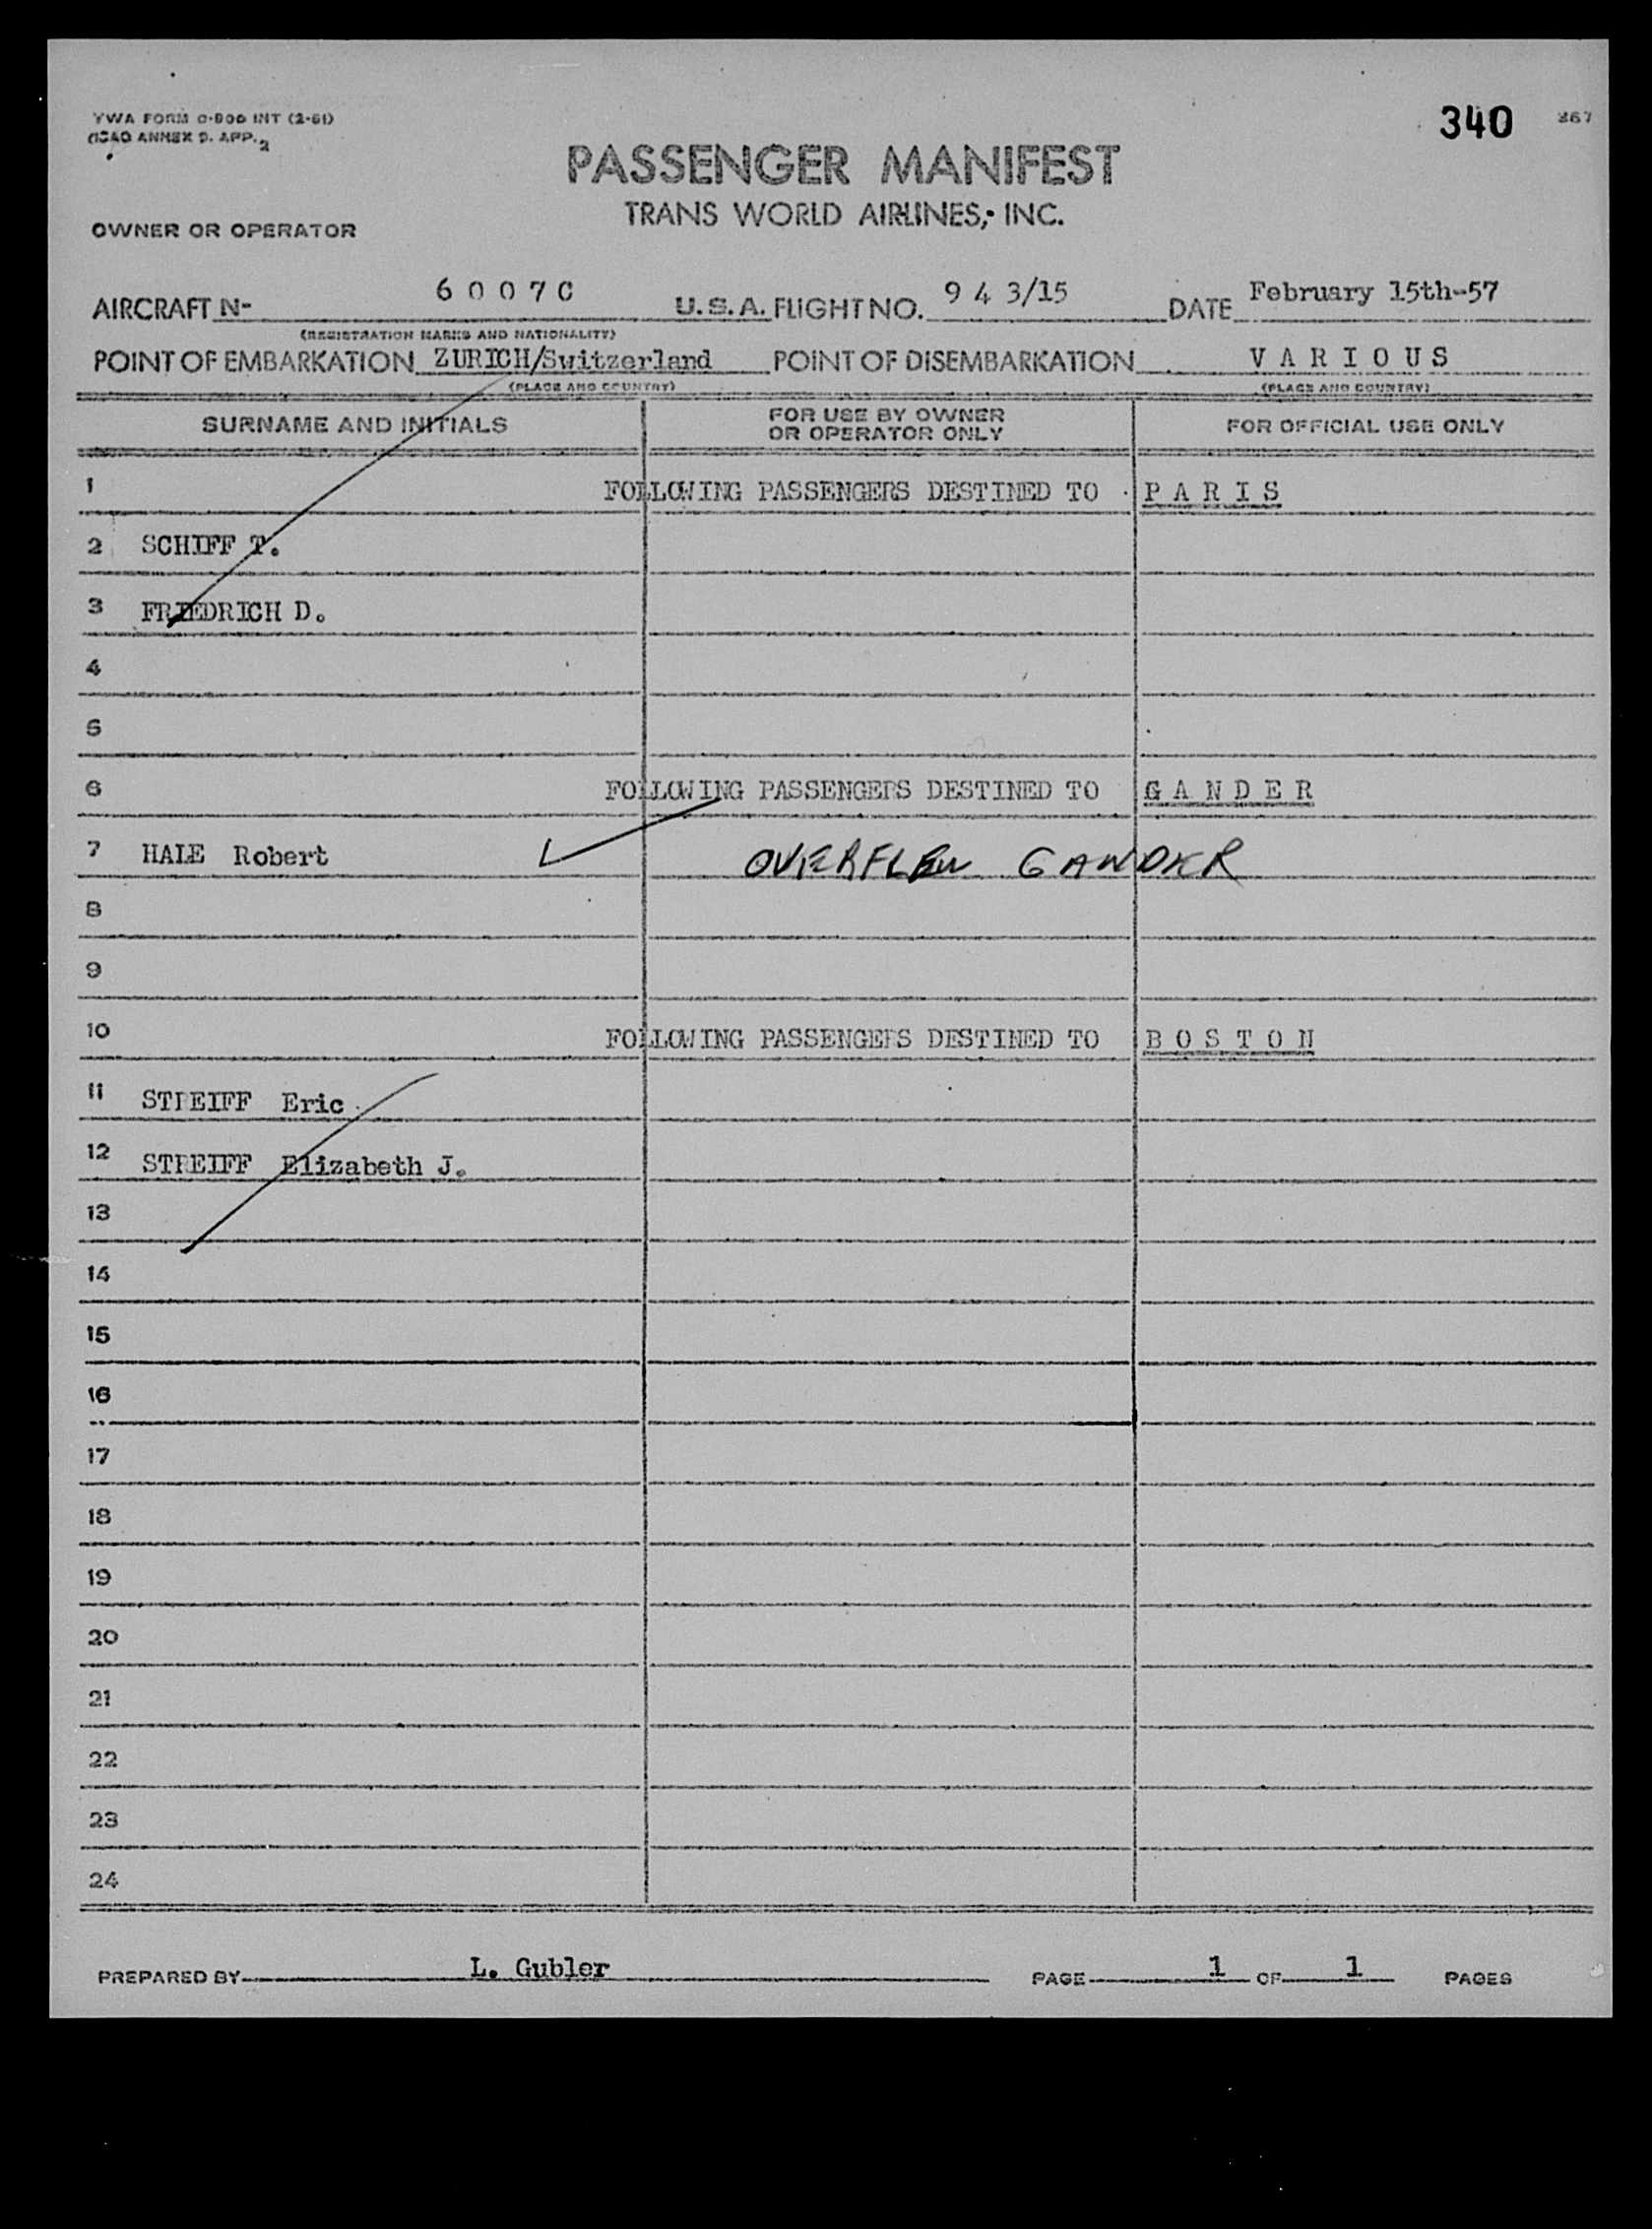 TWA FORM O-800 INT (2-51)
ICAO ANNEX 9. APP. 2
340
267
PASSENGER MANIFEST
TRANS WORLD AIRLINES, INC.
OWNER OR OPERATOR
AIRCRAFT N- 6 0 0 7 C U.S.A. FLIGHT NO. 9 4 3/15 DATE February 15th-57
(REGISTRATION MARKS AND NATIONALITY)
POINT OF EMBARKATION ZURICH/Switzerland POINT OF DISEMBARKATION V A R I O U S
(PLACE AND COUNTRY) (PLACE AND COUNTRY)
SURNAME AND INITIALS FOR USE BY OWNER OR OPERATOR ONLY FOR OFFICIAL USE ONLY
1 FOLLOWING PASSENGERS DESTINED TO P A R I S
2 SCHIFF T.
3 FRIEDRICH D.
4
5
6 FOLLOWING PASSENGERS DESTINED TO G A N D E R
7 HALE Robert OVERFLEW GANDER
8
9
10 FOLLOWING PASSENGERS DESTINED TO B O S T O N
11 STREIFF Eric
12 STREIFF Elizabeth J.
13
14
15
16
17
18
19
20
21
22
23
24
PREPARED BY L. Gubler PAGE 1 OF 1 PAGES